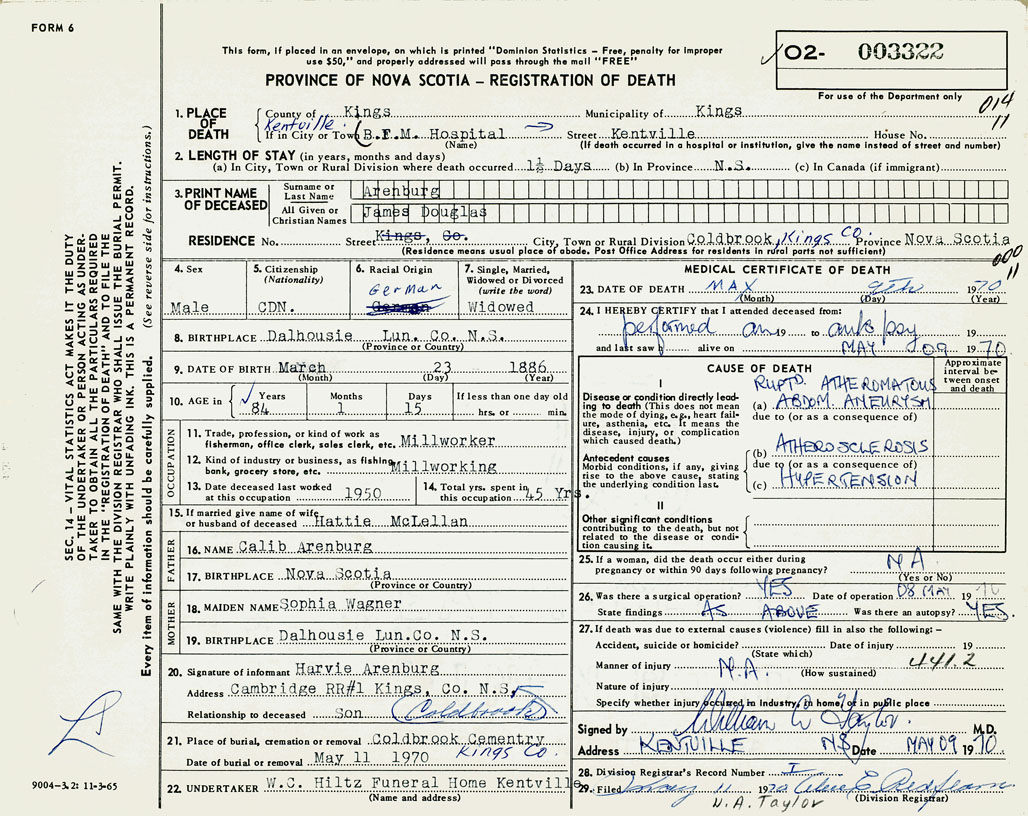 FORM 6
This form, if placed in an envelope, on which is printed "Dominion Statistics – Free, penalty for improper
use $50," and properly addressed will pass through the mail "FREE"
PROVINCE OF NOVA SCOTIA – REGISTRATION OF DEATH
O2- 003322
For use of the Department only
014
11
1. PLACE OF DEATH
County of Kings Municipality of Kings
Kentville
If in City or Town B.F.M. Hospital Street Kentville House No.
(Name) (If death occurred in a hospital or institution, give the name instead of street and number)
2. LENGTH OF STAY (in years, months and days)
(a) In City, Town or Rural Division where death occurred 1½ Days (b) In Province N.S. (c) In Canada (if immigrant)
3. PRINT NAME OF DECEASED
Surname or Last Name Arenburg
All Given or Christian Names James Douglas
RESIDENCE No. Street Kings, Co. City, Town or Rural Division Coldbrook, Kings Co. Province Nova Scotia
(Residence means usual place of abode. Post Office Address for residents in rural parts not sufficient)
000
11
4. Sex
Male
5. Citizenship
(Nationality)
CDN.
6. Racial Origin
German
German
7. Single, Married,
Widowed or Divorced
(write the word)
Widowed
8. BIRTHPLACE Dalhousie Lun. Co. N.S.
(Province or Country)
9. DATE OF BIRTH March 23 1886
(Month) (Day) (Year)
10. AGE in Years Months Days If less than one day old
84 1 15 hrs. or min.
OCCUPATION
11. Trade, profession, or kind of work as
fisherman, office clerk, sales clerk, etc. Millworker
12. Kind of industry or business, as fishing,
bank, grocery store, etc. Millworking
13. Date deceased last worked
at this occupation 1950
14. Total yrs. spent in
this occupation 45 Yrs.
15. If married give name of wife
or husband of deceased Hattie McLellan
FATHER
16. NAME Calib Arenburg
17. BIRTHPLACE Nova Scotia
(Province or Country)
MOTHER
18. MAIDEN NAME Sophia Wagner
19. BIRTHPLACE Dalhousie Lun.Co. N.S.
(Province or Country)
20. Signature of informant Harvie Arenburg
Address Cambridge RR#1 Kings, Co. N.S.
Relationship to deceased Son (Coldbrook)
21. Place of burial, cremation or removal Coldbrook Cementry
Kings Co
Date of burial or removal May 11 1970
22. UNDERTAKER W.C. Hiltz Funeral Home Kentville
(Name and address)
MEDICAL CERTIFICATE OF DEATH
23. DATE OF DEATH MAY 9th 1970
(Month) (Day) (Year)
24. I HEREBY CERTIFY that I attended deceased from:
performed an 19 to autopsy 19
and last saw h alive on MAY 09 1970
CAUSE OF DEATH
Approximate
interval be-
tween onset
and death
I
Disease or condition directly lead-
ing to death (This does not mean
the mode of dying, e.g., heart fail-
ure, asthenia, etc. It means the
disease, injury, or complication
which caused death.)
RUPTD. ATHEROMATOUS
(a) ABDOM. ANEURYSM
due to (or as a consequence of)
Antecedent causes
Morbid conditions, if any, giving
rise to the above cause, stating
the underlying condition last.
(b) ATHEROSCLEROSIS
due to (or as a consequence of)
(c) HYPERTENSION
II
Other significant conditions
contributing to the death, but not
related to the disease or condi-
tion causing it.
25. If a woman, did the death occur either during
pregnancy or within 90 days following pregnancy? N A
(Yes or No)
26. Was there a surgical operation? YES Date of operation 08 MAY 1970
State findings AS ABOVE Was there an autopsy? YES.
27. If death was due to external causes (violence) fill in also the following: –
Accident, suicide or homicide? Date of injury 19
(State which) 441.2
Manner of injury N.A.
(How sustained)
Nature of injury
Specify whether injury occurred in Industry, in home, or in public place
Signed by William A Taylor M.D.
Address KENTVILLE NS Date MAY 09 1970
28. Division Registrar's Record Number I
29. Filed May 11 1970
(Division Registrar)
W.A. Taylor
SEC. 14 – VITAL STATISTICS ACT MAKES IT THE DUTY
OF THE UNDERTAKER OR PERSON ACTING AS UNDER-
TAKER TO OBTAIN ALL THE PARTICULARS REQUIRED
IN THE "REGISTRATION OF DEATH" AND TO FILE THE
SAME WITH THE DIVISION REGISTRAR WHO SHALL ISSUE THE BURIAL PERMIT.
WRITE PLAINLY WITH UNFADING INK. THIS IS A PERMANENT RECORD.
Every item of information should be carefully supplied. (See reverse side for instructions.)
9004–3.2: 11-3-65